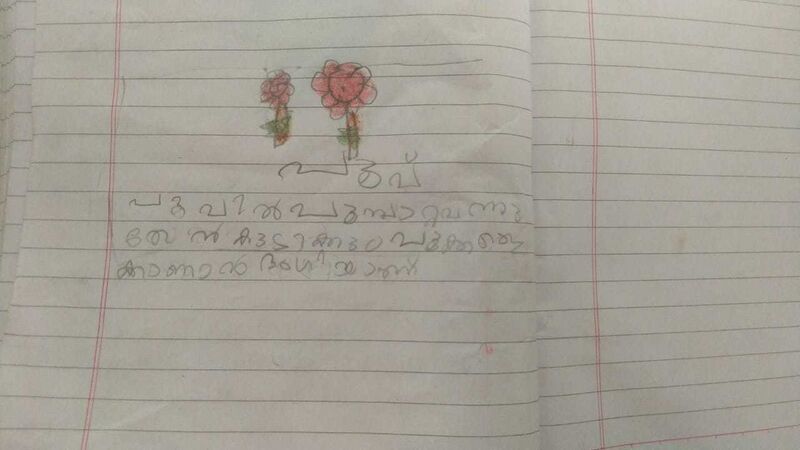 പൂവ്
പൂവിൽ പൂമ്പാറ്റ വന്നു
തേൻ കുടിക്കും പൂക്കളെ
കാണാൻ ഭംഗിയാണ്